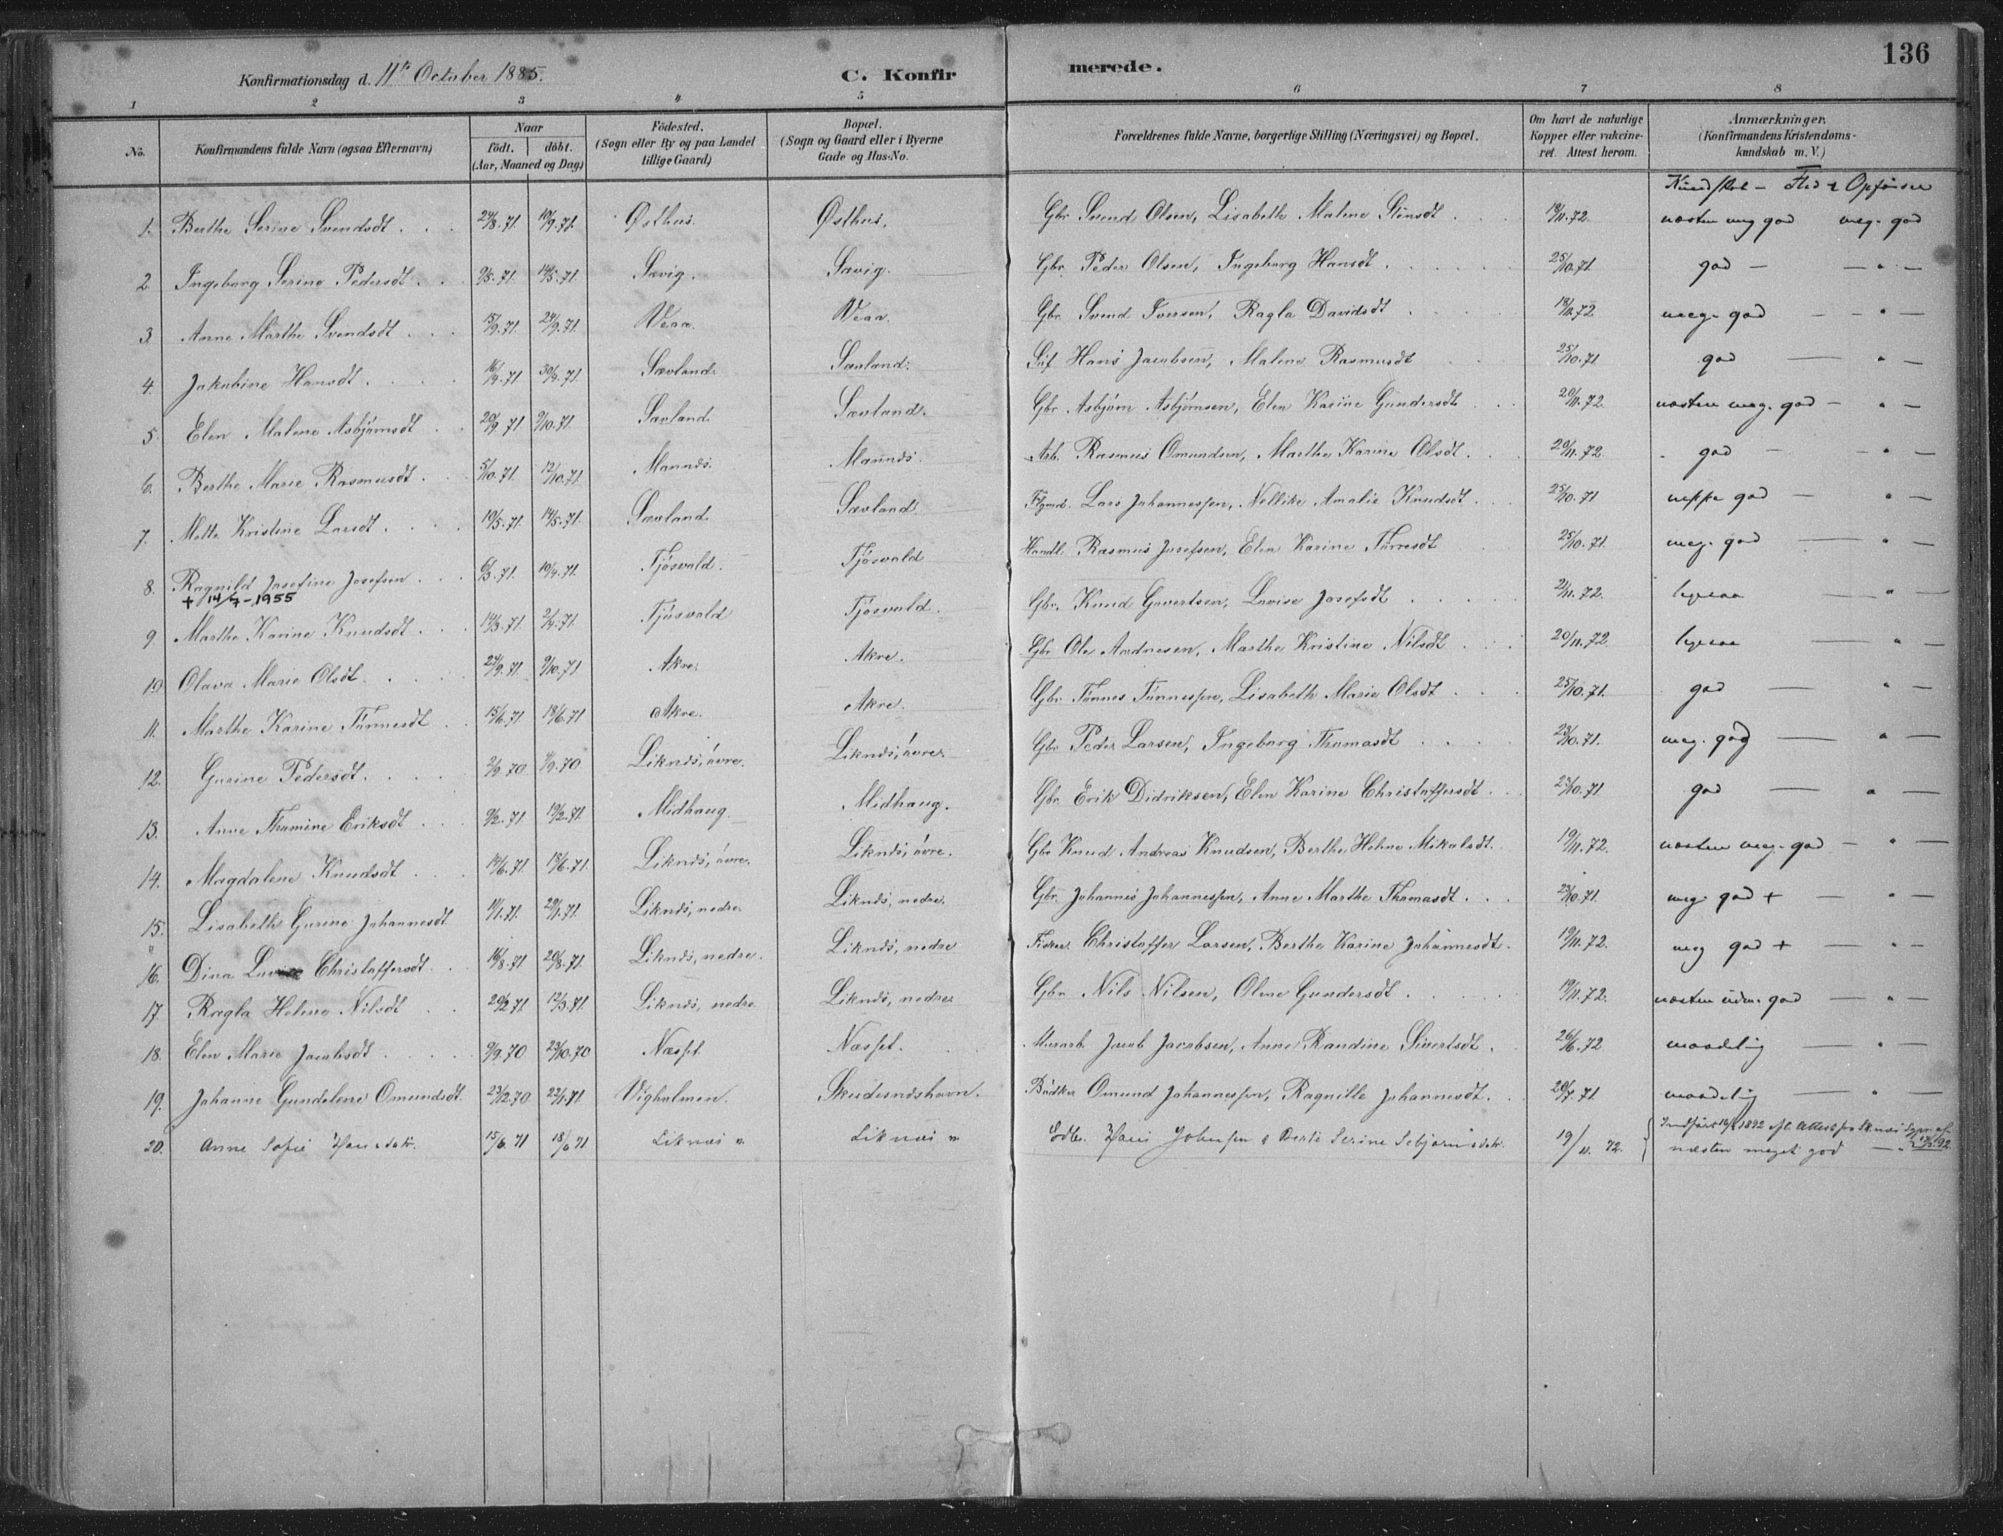 136
Konfirmationsdag d. 11te October 1885. C. Konfirmerede.
1 2 3 4 5 6 7 8
No. Konfirmandens fulde Navn (ogsaa Efternavn) Naar födt. döbt. (Aar, Maaned og Dag) Födested. (Sogn eller By og paa Landet tillige Gaard) Bopæl. (Sogn og Gaard eller i Byerne Gade og Hus-No. Forældrenes fulde Navne, borgerlige Stilling (Næringsvei) og Bopæl. Om havt de naturlige Kopper eller vakcineret. Attest herom. Anmærkninger. (Konfirmandens Kristendomskundskab m. V.)
Kundskab – Flid & Opførsel
1. Berthe Serine Svendsdt 24/8.71. 10/9.71. Østhus. Østhus. Gbr Svend Olsen, Lisabeth Malene 18/11.72. næsten meg god meg. god
2. Ingeborg Serine Pedersdt 9/5.71. 14/5.71. Sævig. Sævig. Gbr. Peder Olsen, Ingeborg Hansdt 25/10.71. god – – " –
3. Anne Marthe Svendsdt 15/9.71. 24/9.71. Veaa. Veaa. Gbr. Svend Iversen, Ragla Davidsdt 18/11.72 meg. god – – " –
4. Jakobine Hansdt 16/9.71 30/9.71 Sævland. Sævland. Hans Jacobsen, Malene Rasmusdt 25/10.71 god – " –
5. Elen Malene Asbjørnsdt 20/9.71 9/10.71. Sævland. Sævland. Gbr Asbjørn Asbjørnsen, Elen Karine Gundersdt 20/11.72. næsten meg. god – " –
6. Berthe Marie Rasmusdt 5/10.71. 12/10.71. Mannes. Mannes. Arb. Rasmus Omundsen, Marthe Karine Olsdt. 20/11.72. god – " –
7. Mette Kristine Larsdt 10/5.71. 14/5.71. Sævland. Sævland. Lars Johannessen, Nellike Amalie Knudsdt 25/10.71 neppe god – " –
8. Ragnild Josefine Josefsen 6/3.71. 10/4.71. Tjøsvold. Tjøsvold Handl. Rasmus Josefsen, Elen Karine Tørresdt 25/10.71. meg. god – " –
+ 14/7-1955
9. Marthe Karine Knudsdt 14/3.71. 2/4.71. Tjøsvold Tjøsvold. Gbr. Knud Govertsen, Lovise Josefsdt 21/11.72. ligesaa – " –
10. Olava Marie Olsdt. 24/9.71. 9/10.71 Akre. Akre. Gbr Ole Andresen, Marthe Kristine Nilsdt 20/11.72. ligesaa – " –
11. Marthe Karine Tønnesdt 15/6.71 18/6.71 Akre. Akre. Gbr. Tønnes Tønnessen, Lisabeth Marie Olsdt 25/10.71. god – " –
12. Gurine Pedersdt. 2/9.70 4/9.70 Liknes, øvre. Liknes, øvre. Gbr. Peder Larsen, Ingeborg Thomasdt 23/10.71. meg. god – " –
13. Anne Thomine Eriksdt 9/2.71 19/2.71. Midhaug. Midhaug. Gbr Erik Didriksen, Elen Karine Christoffersdt 23/10.71 god – " –
14. Magdalene Knudsdt 14/6.71 18/6.71. Liknes, øvre. Liknes, øvre. Gbr Knud Andreas Knudsen, Berthe Helene Mikalsdt. 19/11.72. næsten meg. god – " –
15. Lisabeth Gurine Johannesdt 11/1.71. 29/1.71. Liknes, nedre Liknes, nedre. Gbr. Johannes Johannessen, Anne Marthe Thomasdt. 23/10.71. meg. god + – " –
16. Dina Lovise Christoffersdt. 16/8.71 20/8.71. Liknes, nedre. Liknes, nedre Fisker Christoffer Larsen, Berthe Karine Johannesdt. 19/11.72. meg god + – " –
17. Ragla Helene Nilsdt 20/2.71 12/3.71. Liknes, nedre Liknes, nedre Gbr Nils Nilsen, Oline Gundersdt 19/11.72. næsten udm. god – " –
18. Elen Marie Jacobsdt 9/9.70 23/10.70 Næsset. Næsset. Murarb. Jacob Jacobsen, Anne Randine Sivertsdt. 26/6.72 maadelig – " –
19. Johanne Gundelene Omundsdt. 23/12.70 22/1.71. Vigholmen. Skudesneshavn. Bødker Omund Johannessen, Ragnille Johannesdt. 20/7.71 maadelig – " –
20. Anne Sofie Hansdatr. 15/6 71 18/6 71 Liknæs Liknæs Hans Johnsen & Berte Serine Sebjørnsdatr. 19/11.72. Indført 1892 Attest fra
næsten meget god – "